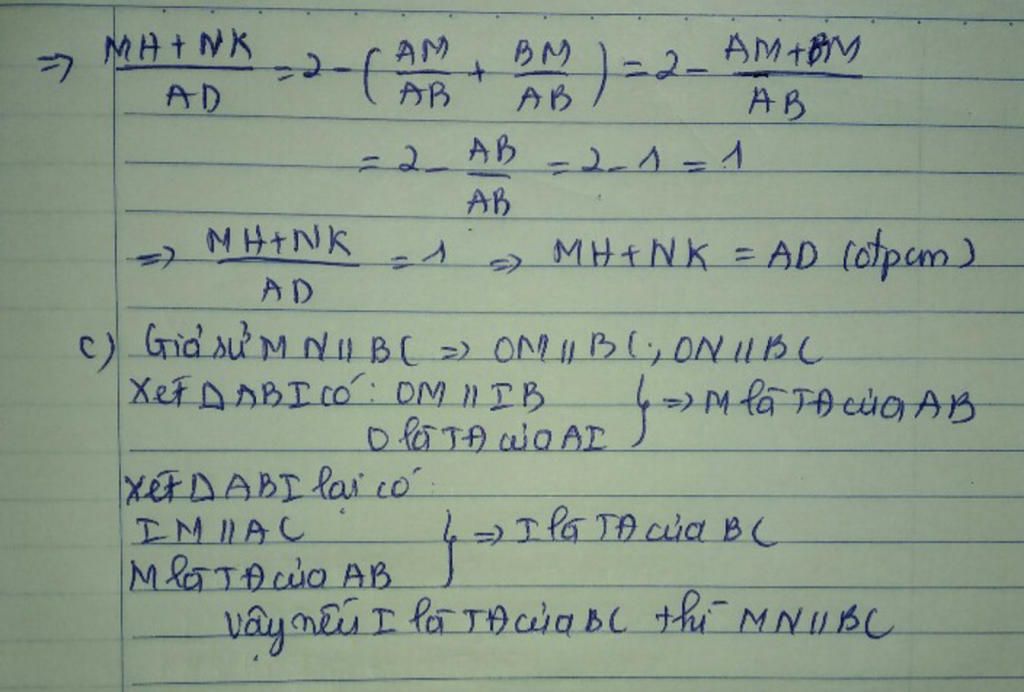 ⇒ (MH + NK)/AD = 2 - (AM/AB + BM/AB) = 2 - (AM + BM)/AB
= 2 - AB/AB = 2 - 1 = 1
⇒ (MH + NK)/AD = 1 ⇒ MH + NK = AD (đpcm)
c) Giả sử MN // BC ⇒ OM // BC; ON // BC
Xét Δ ABI có: OM // IB } ⇒ M là TĐ của AB
O là TĐ của AI
Xét Δ ABI lại có
IM // AC } ⇒ I là TĐ của BC
M là TĐ của AB
Vậy nếu I là TĐ của BC thì MN // BC